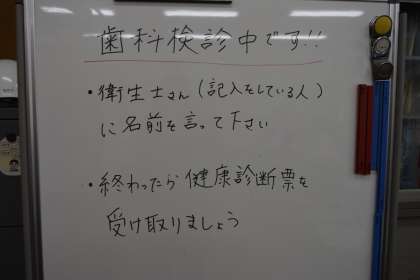 歯科検診中です!!
・衛生士さん(記入をしている人)
に名前を言って下さい
・終わったら健康診断票を
受け取りましょう